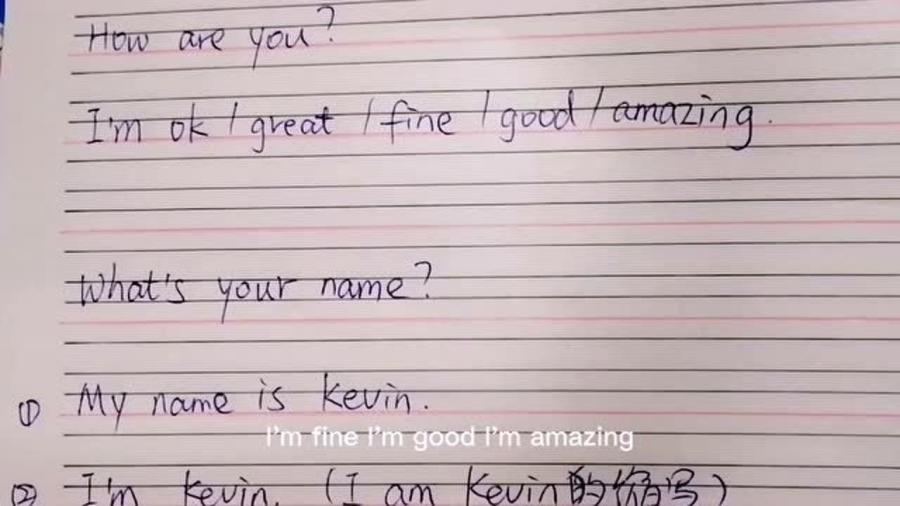 How are you?
I'm ok / great / fine / good / amazing.
What's your name?
① My name is Kevin.
I'm fine I'm good I'm amazing
② I'm Kevin. (I am Kevin的缩写)